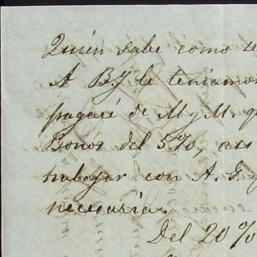 Quién sabe como se
A BJ le teniamos
pagaré de M y M. q
Bonos del 5%, cas
trabajar con A. G. y
necesaria.
Del 20%